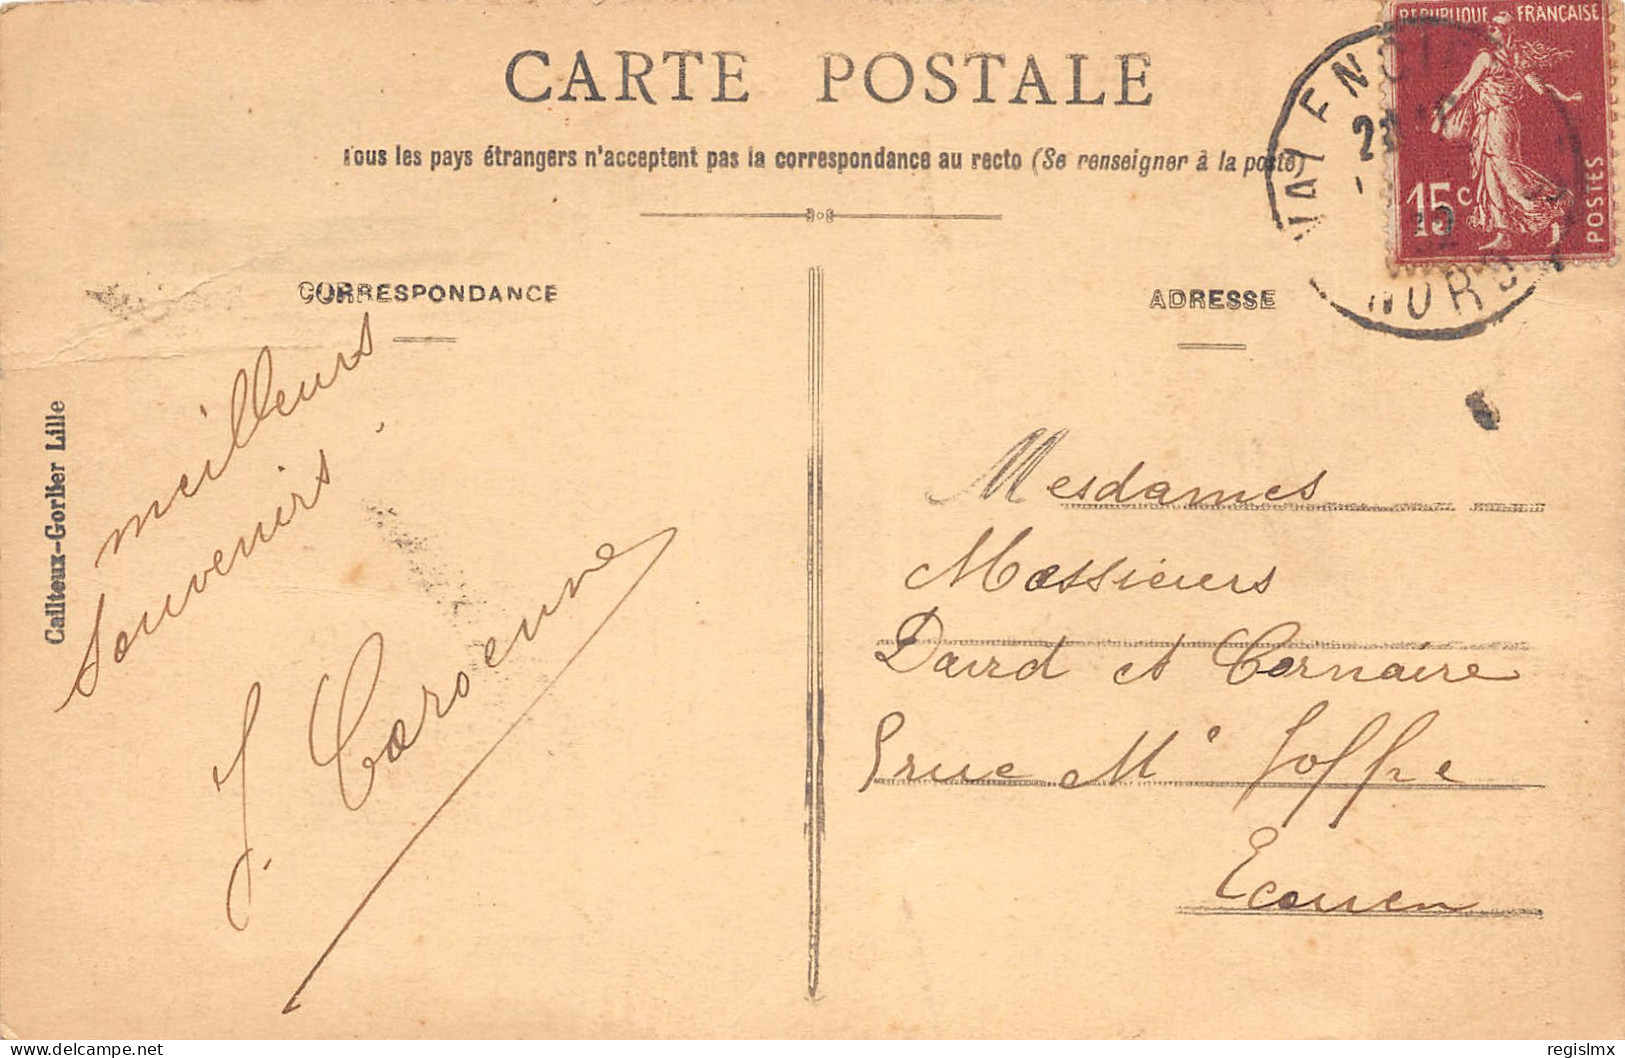 CARTE POSTALE
Tous les pays étrangers n'acceptent pas la correspondance au recto (Se renseigner à la poste)
RÉPUBLIQUE FRANÇAISE
15c
POSTES
NORD
CORRESPONDANCE
ADRESSE
Cailteux-Gorlier Lille
meilleurs
souvenirs.
J.
Mesdames
Messieurs
David et Cornaire
rue Mal Joffre
Ecouen
delcampe.net
regislmx